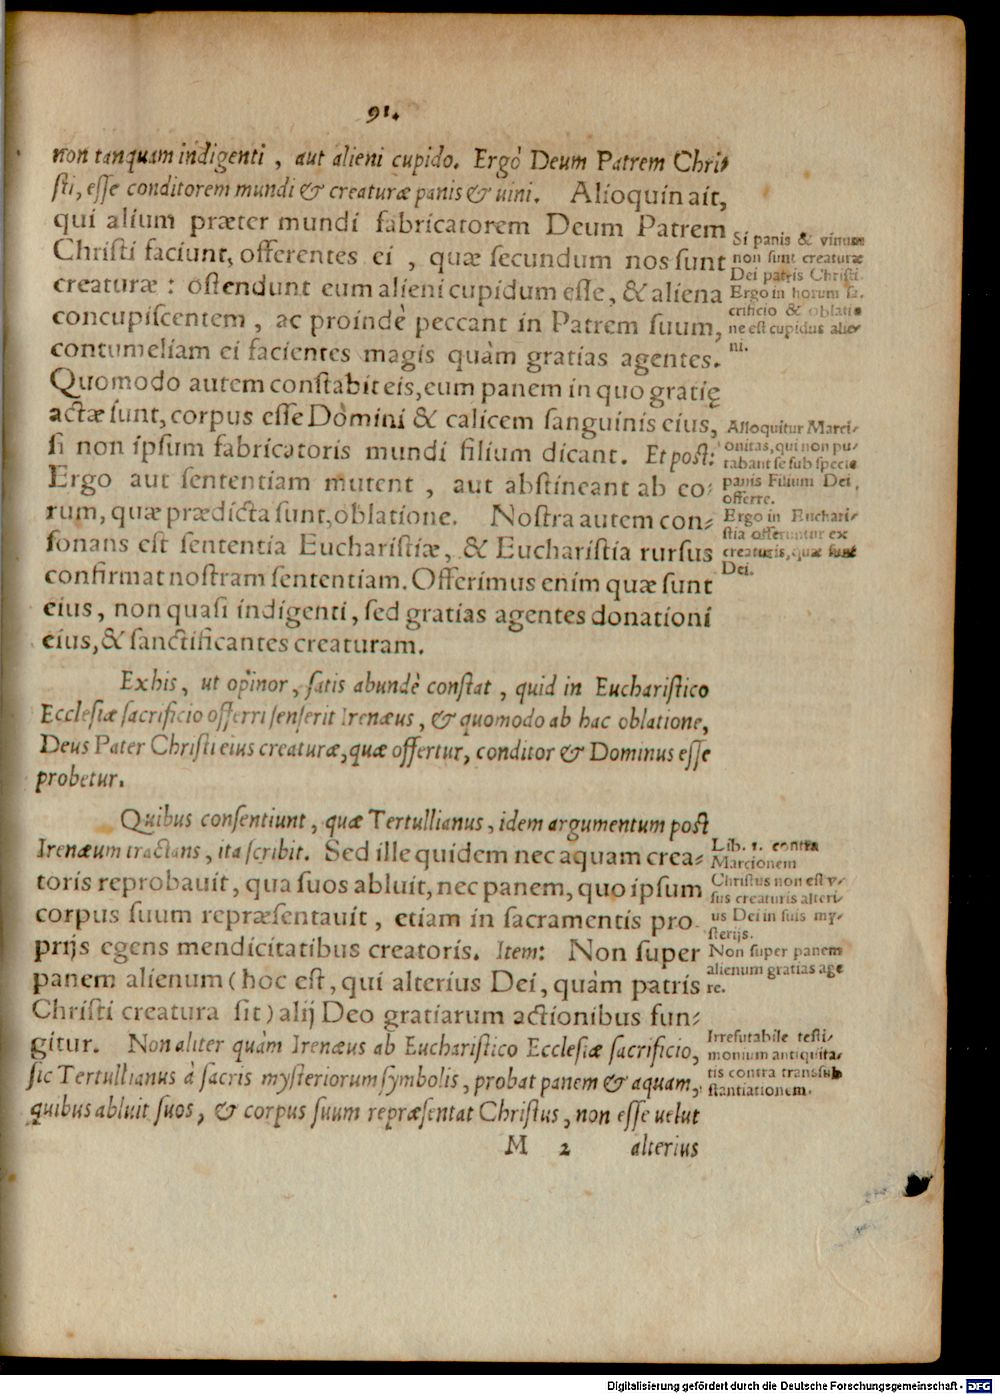 91.
non tanquam indigenti, aut alieni cupido. Ergò Deum Patrem Chri-
sti, esse conditorem mundi & creaturæ panis & uini. Alioquin ait,
qui alium præter mundi fabricatorem Deum Patrem
Christi faciunt, offerentes ei, quæ secundum nos sunt
creaturæ: ostendunt eum alieni cupidum esse, & aliena
concupiscentem, ac proindè peccant in Patrem suum,
contumeliam ei facientes magis quàm gratias agentes.
Quomodo autem constabit eis, eum panem in quo gratię
actæ sunt, corpus esse Domini & calicem sanguinis eius,
si non ipsum fabricatoris mundi filium dicant. Et post:
Ergo aut sententiam mutent, aut abstineant ab eo-
rum, quæ prædicta sunt, oblatione. Nostra autem con-
sonans est sententia Eucharistiæ, & Eucharistia rursus
confirmat nostram sententiam. Offerimus enim quæ sunt
eius, non quasi indigenti, sed gratias agentes donationi
eius, & sanctificantes creaturam.
Si panis & vinum
non sunt creaturæ
Dei patris Christi.
Ergo in horum sa-
crificio & oblatio
ne est cupidus alie-
ni.
Alloquitur Marci-
onitas, qui non pu-
tabant se sub specie
panis Filium Dei
offerre.
Ergo in Euchari-
stia offeruntur ex
creaturis, quæ sunt
Dei.
Ex his, ut opinor, satis abundè constat, quid in Eucharistico
Ecclesiæ sacrificio offerri senserit Irenæus, & quomodo ab hac oblatione,
Deus Pater Christi eius creaturæ, quæ offertur, conditor & Dominus esse
probetur.
Quibus consentiunt, quæ Tertullianus, idem argumentum post
Irenæum tractans, ita scribit. Sed ille quidem nec aquam crea-
toris reprobauit, qua suos abluit, nec panem, quo ipsum
corpus suum repræsentauit, etiam in sacramentis pro
prijs egens mendicitatibus creatoris. Item: Non super
panem alienum (hoc est, qui alterius Dei, quàm patris
Christi creatura sit) alij Deo gratiarum actionibus fun-
gitur. Non aliter quàm Irenæus ab Eucharistico Ecclesiæ sacrificio,
sic Tertullianus à sacris mysteriorum symbolis, probat panem & aquam,
quibus abluit suos, & corpus suum repræsentat Christus, non esse uelut
Lib. 1. contra
Marcionem
Christus non est v-
sus creaturis alteri-
us Dei in suis my-
sterijs.
Non super panem
alienum gratias age
re.
Irrefutabile testi-
monium antiquita-
tis contra transsub
stantiationem.
M 2 alterius
Digitalisierung gefördert durch die Deutsche Forschungsgemeinschaft - DFG